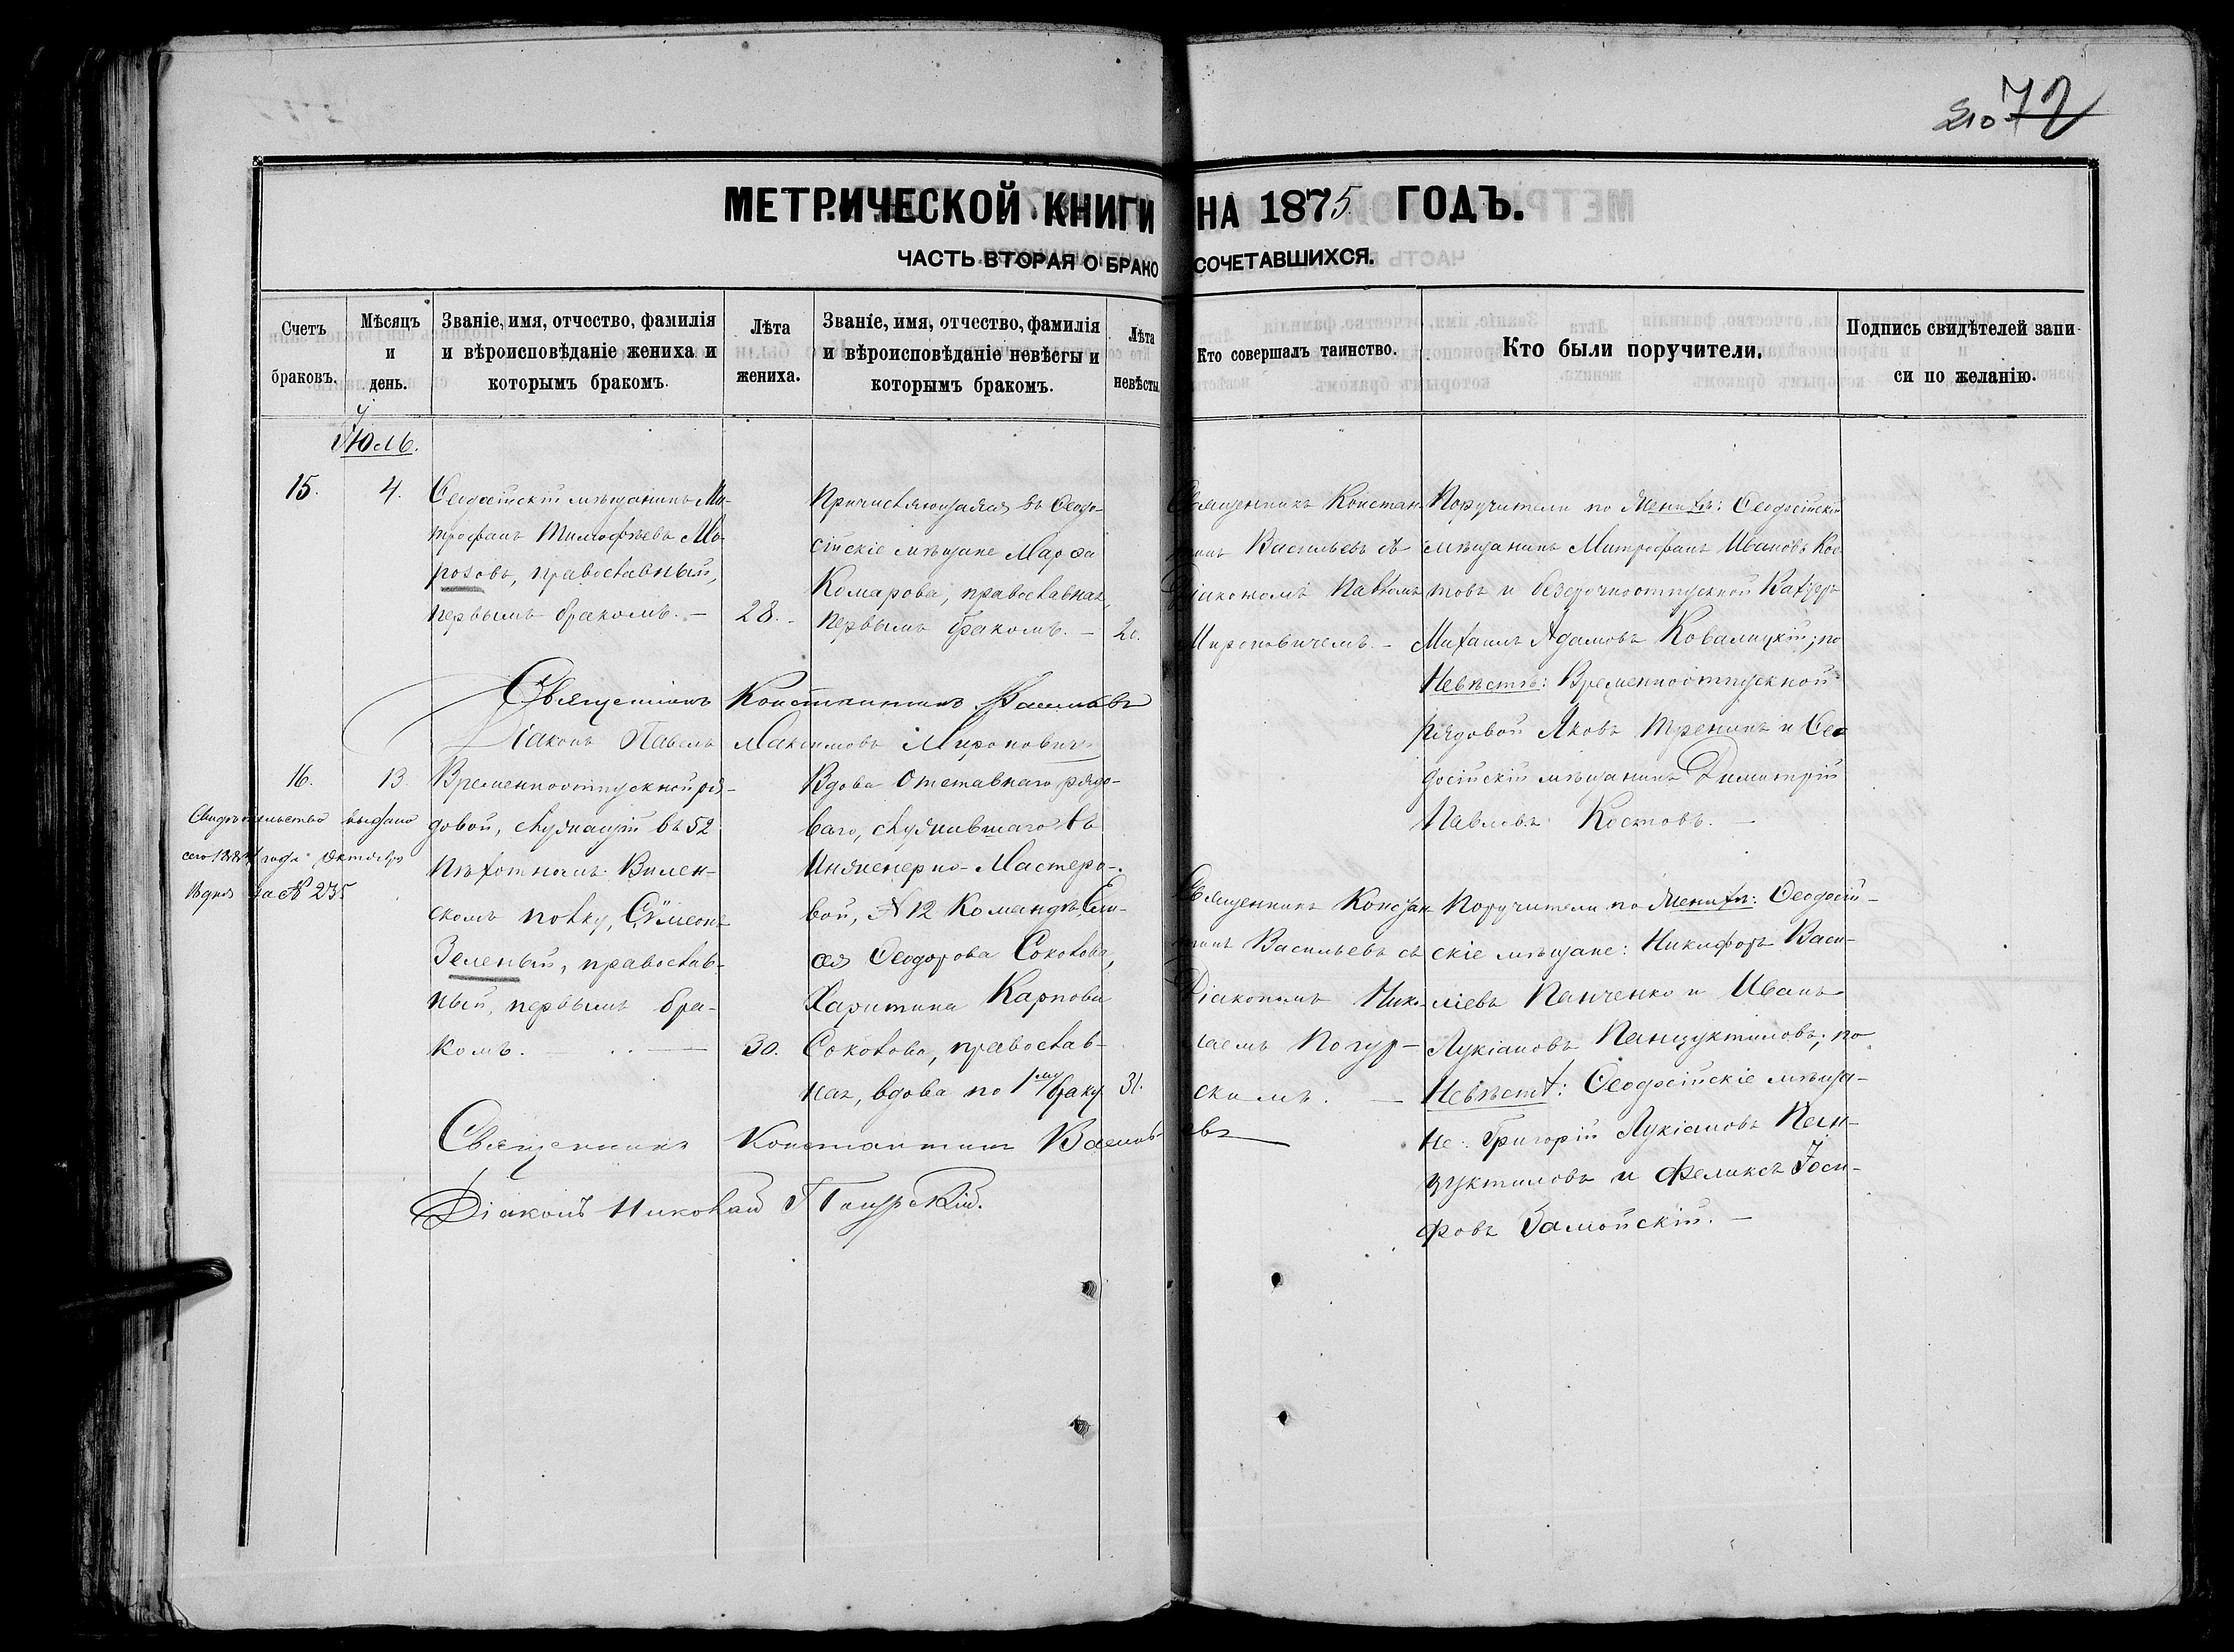 210 72
МЕТРИЧЕСКОЙ КНИГИ НА 1875 ГОДЪ.
ЧАСТЬ ВТОРАЯ О БРАКОСОЧЕТАВШИХСЯ.
Счетъ браковъ.
Мѣсяцъ и день.
Званіе, имя, отчество, фамилія
и вѣроисповѣданіе жениха и
которымъ бракомъ.
Лѣта
жениха.
Званіе, имя, отчество, фамилія
и вѣроисповѣданіе невѣсты и
которымъ бракомъ.
Лѣта
невѣсты
Кто совершалъ таинство.
Кто были поручители.
Подпись свидѣтелей запи-
си по желанію.
Іюль.
15.
4.
Ѳеодосійскій мѣщанинъ Ми-
трофанъ Тимофѣевъ Мо-
розовъ, православный,
первымъ бракомъ. —
28. -
Причисляющаяся въ Ѳеодо-
сійскіе мѣщане Марѳа
Комарова, православная,
первымъ бракомъ. —
20.
Священникъ Констан-
тинъ Васильевъ съ
Діакономъ Павломъ
Мироповичемъ. —
Поручители по Женихѣ: Ѳеодосійскій
мѣщанинъ Митрофанъ Ивановъ Кос-
товъ и безсрочноотпускной
Михаилъ Адамовъ Ковалицкій; по
Невѣстѣ: Временноотпускной
рядовой Яковъ Тренинъ и Ѳео-
досійскій мѣщанинъ Димитрій
Павловъ Костовъ. —
Священникъ Константинъ Васильевъ
Діаконъ Павелъ Максимовъ Мироповичъ
16.
13.
Свидѣтельство выдано
октября
за № 235
Временноотпускной ря-
довой, служащій въ 52
Пѣхотномъ Вилен-
скомъ полку, Сѵмеонъ
Зеленый, православ-
ный, первымъ бра-
комъ. —
30.
Вдова Отставнаго рядо-
ваго, служившаго въ
Инженерно-Мастеро-
вой, № 12 Командѣ
Ѳеодорова Соколова,
Харитина Карпова
Соколова, православ-
ная, вдова по 1му браку
31.
Священникъ Констан-
тинъ Васильевъ съ
Діакономъ Нико-
лаемъ Погур-
скимъ. —
Поручители по Женихѣ: Ѳеодосій-
скіе мѣщане: Никифоръ Васи-
ліевъ Панченко и Иванъ
Лукіановъ Панцуктиловъ; по
Невѣстѣ: Ѳеодосійскіе мѣща-
не: Григорій Лукіановъ Пан-
цуктиловъ и Феликсъ Іоси-
фовъ Замойскій. —
Священникъ Константинъ Васильевъ
Діаконъ Николай Погурскій.